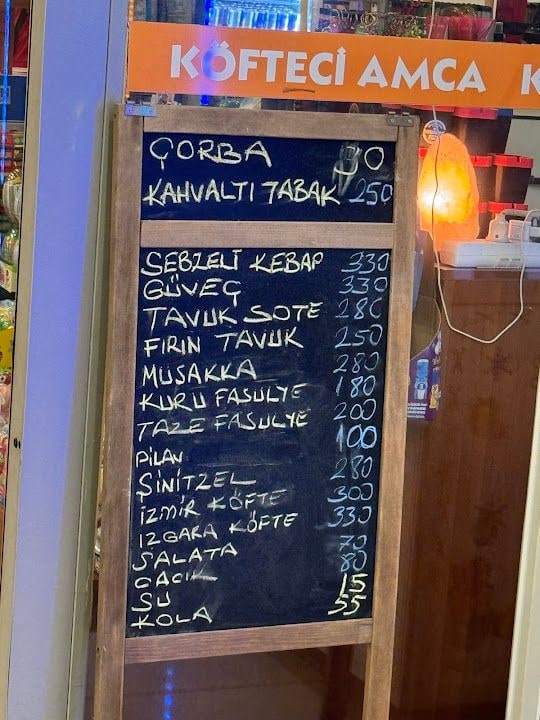 KÖFTECİ AMCA K
ÇORBA 90
KAHVALTI TABAK 250
SEBZELİ KEBAP 330
GÜVEÇ 330
TAVUK SOTE 280
FIRIN TAVUK 250
MUSAKKA 280
KURU FASULYE 180
TAZE FASULYE 200
PİLAV 100
ŞİNİTZEL 280
İZMİR KÖFTE 300
IZGARA KÖFTE 330
SALATA 70
CACIK 80
SU 15
KOLA 55